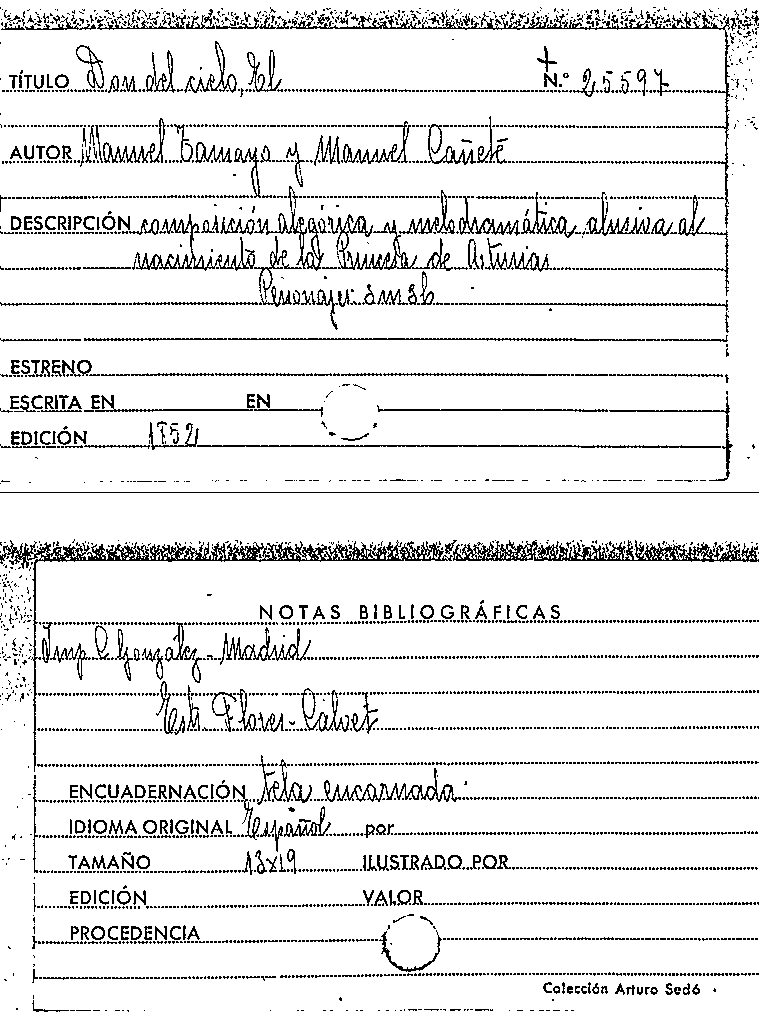 TÍTULO Don del cielo, El N.º 25597
AUTOR Manuel Tamayo y Manuel Cañete
DESCRIPCIÓN composición alegórica y melodramática alusiva al
nacimiento de la Princesa de Asturias
Personajes: 2m 3h
ESTRENO
ESCRITA EN EN
EDICIÓN 1852
NOTAS BIBLIOGRÁFICAS
Imp C González - Madrid
Flores - Calvet
ENCUADERNACIÓN tela encarnada
IDIOMA ORIGINAL Español por
TAMAÑO 13x19 ILUSTRADO POR
EDICIÓN VALOR
PROCEDENCIA
Colección Arturo Sedó